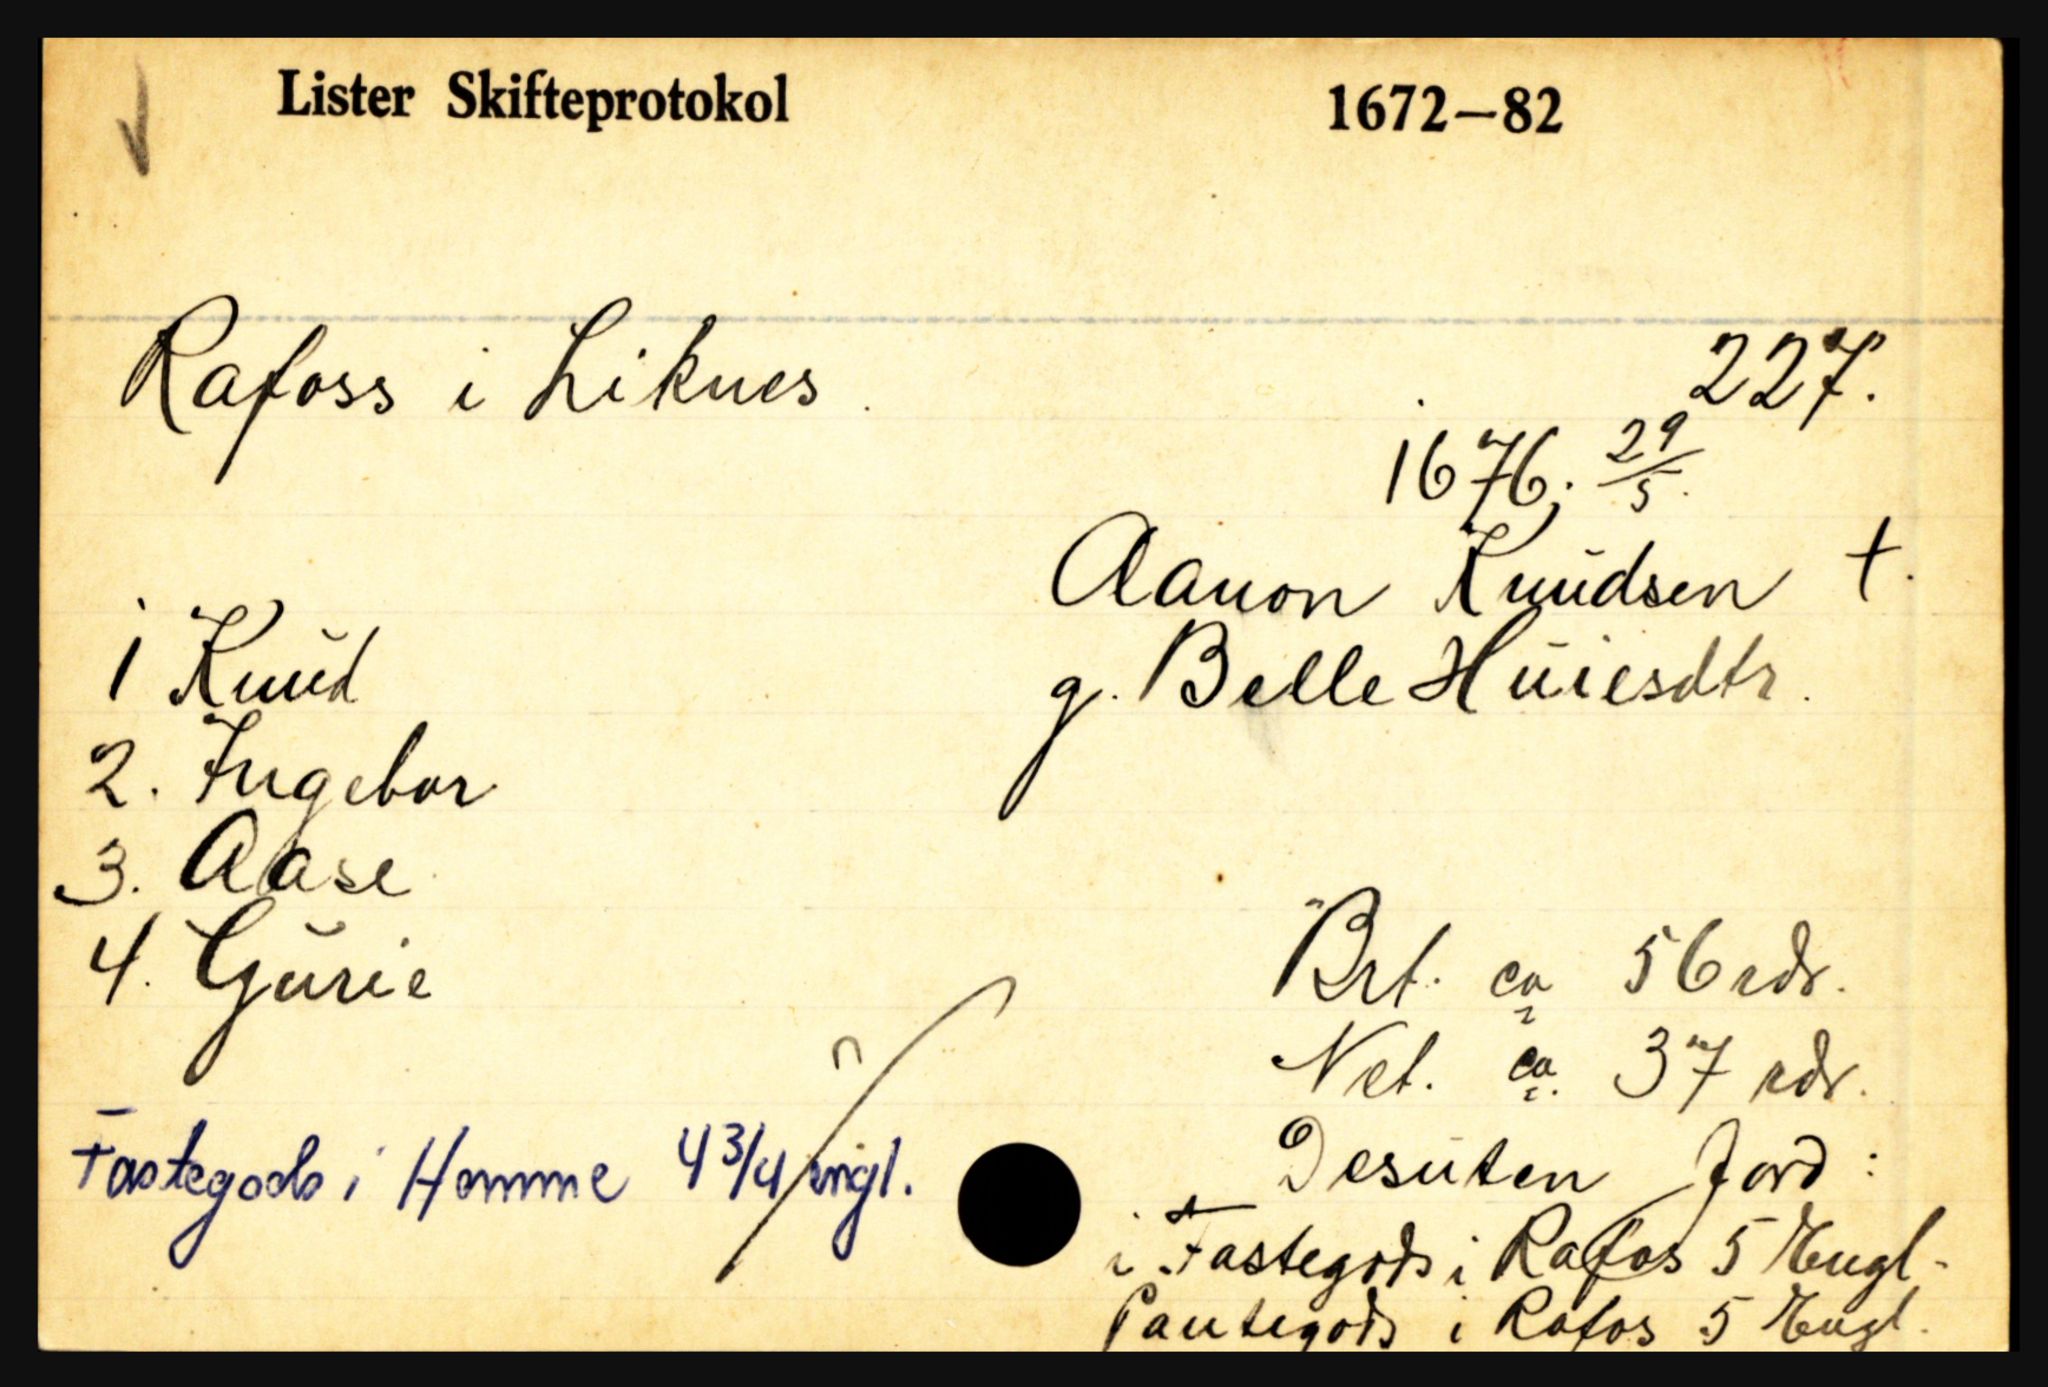 Lister Skifteprotokol 1672—82
Rafoss i Liknes.
227.
1676; 29/5.
Aanon Knudsen †.
g. Belle Huiesdtr.
1 Knud
2. Ingebor
3. Aase
4. Gurie
Brt. ca 56 rdr.
Net. ca. 37 rdr.
Desuten Jord:
i Fastegods i Rafos 5 Engl.
Pantegods i Rafos 5 Engl.
Fastegods i Homme 4 3/4 engl.